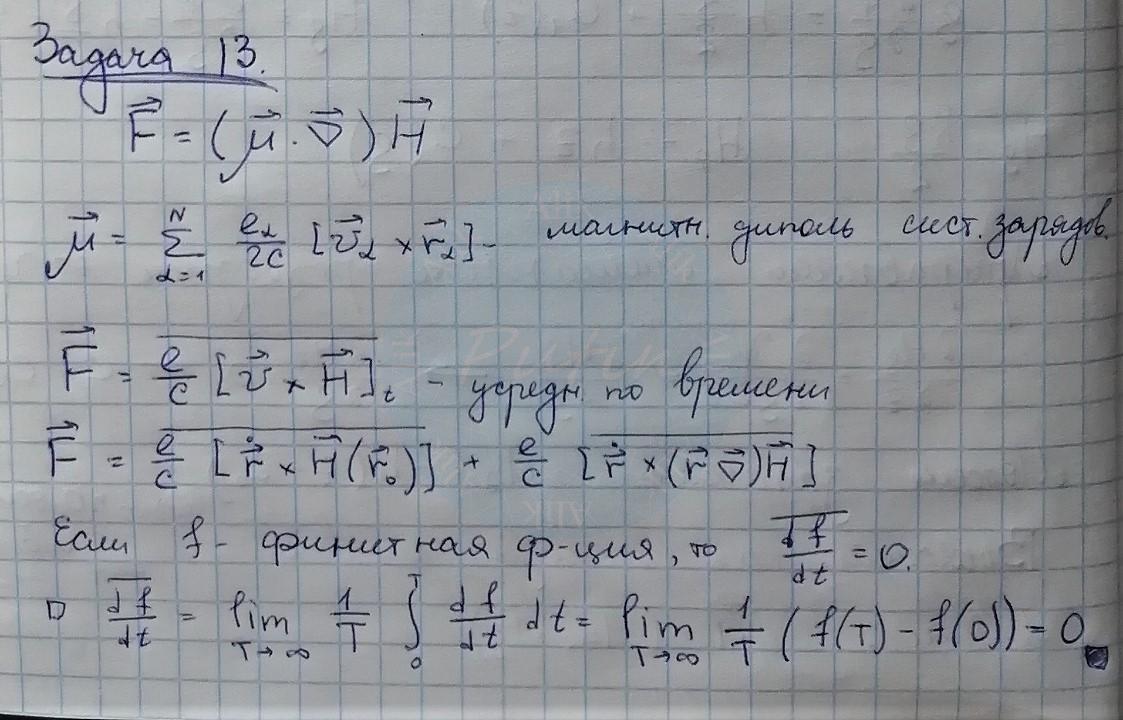 Задача 13.
F⃗ = (μ⃗ · ∇⃗) H⃗
μ⃗ = Σ_{α=1}^{N} e_α/2c [v⃗_α × r⃗_α] – магнитн. диполь сист. зарядов.
F⃗ = \overline{e/c [v⃗ × H⃗]}_t – усредн. по времени
F⃗ = \overline{e/c [ṙ⃗ × H⃗(r⃗₀)]} + e/c \overline{[ṙ⃗ × (r⃗ ∇⃗)H⃗]}
Если f – финитная ф-ция, то \overline{df/dt} = 0.
▷ \overline{df/dt} = lim_{T→∞} 1/T ∫₀^T df/dt dt = lim_{T→∞} 1/T (f(T) – f(0)) = 0 ■